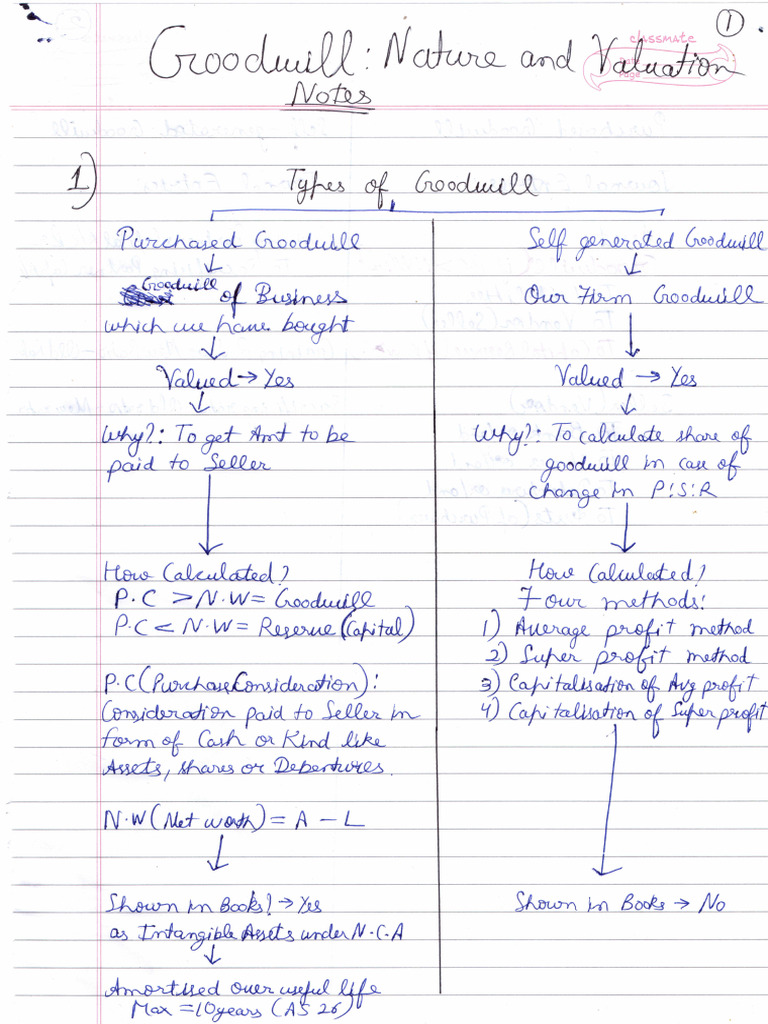 1
classmate
Goodwill: Nature and Valuation
Page
Notes
1) Types of Goodwill
Purchased Goodwill
Goodwill of Business
which we have bought
Valued → Yes
Why?: To get Amt to be
paid to Seller
How Calculated?
P.C > N.W = Goodwill
P.C < N.W = Reserve (Capital)
P.C (Purchase Consideration):
Consideration paid to Seller in
form of Cash or Kind like
Assets, shares or Debentures.
N.W (Net worth) = A - L
Shown in Books? → Yes
as Intangible Assets under N.C.A
Amortised over useful life
Max = 10 years (AS 26)
Self generated Goodwill
Our Firm Goodwill
Valued → Yes
Why?: To calculate share of
goodwill in case of
change in P.S.R
How Calculated?
Four methods:
1) Average profit method
2) Super profit method
3) Capitalisation of Avg profit
4) Capitalisation of Super profit
Shown in Books → No